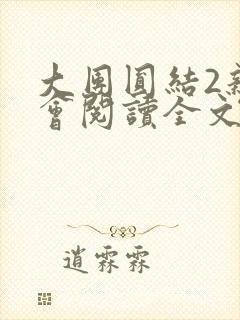 大團圓結2新
會閱讀全文
逍霖霖